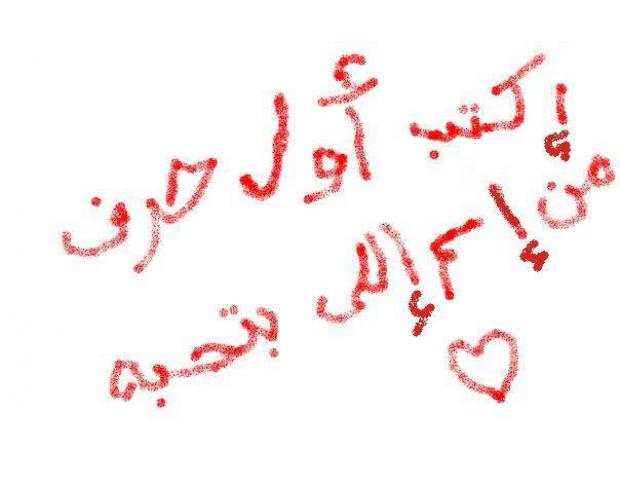 إكتب أول حرف
من إسم إللى
بتحبه